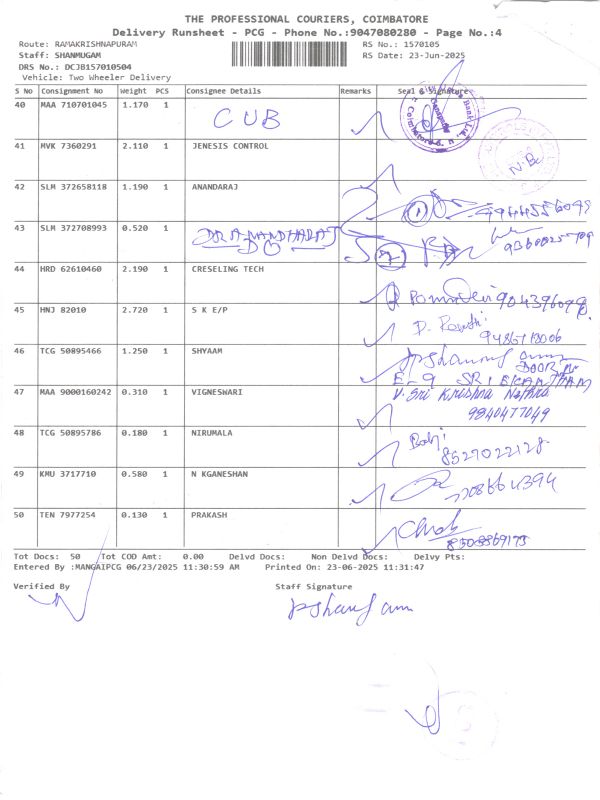 THE PROFESSIONAL COURIERS, COIMBATORE
Delivery Runsheet - PCG - Phone No.:9047080280 - Page No.:4
Route: RAMAKRISHNAPURAM RS No.: 1570105
Staff: SHANMUGAM RS Date: 23-Jun-2025
DRS No.: DCJB157010504
Vehicle: Two Wheeler Delivery
S No Consignment No Weight PCS Consignee Details Remarks Seal & Signature
40 MAA 710701045 1.170 1 CUB
41 MVK 7360291 2.110 1 JENESIS CONTROL
N.Be
42 SLM 372658118 1.190 1 ANANDARAJ
1
43 SLM 372708993 0.520 1 DR ANANDHARAJ
DO
2
44 HRD 62610460 2.190 1 CRESELING TECH
45 HNJ 82010 2.720 1 S K E/P
D.
46 TCG 50895466 1.250 1 SHYAAM
DOOR No
E-9 SRI EKANTHAM
47 MAA 9000160242 0.310 1 VIGNESWARI V. Sri Krishna
9840477049
48 TCG 50895786 0.180 1 NIRUMALA
8527022128
49 KMU 3717710 0.580 1 N KGANESHAN
50 TEN 7977254 0.130 1 PRAKASH
Tot Docs: 50 Tot COD Amt: 0.00 Delvd Docs: Non Delvd Docs: Delvy Pts:
Entered By :MANGAIPCG 06/23/2025 11:30:59 AM Printed On: 23-06-2025 11:31:47
Verified By Staff Signature